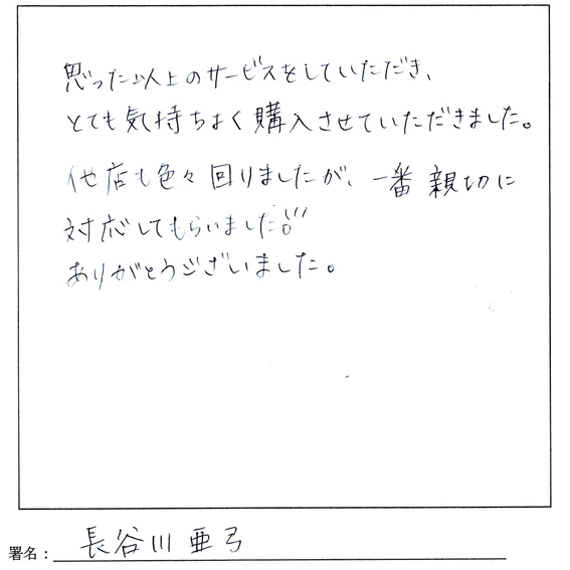 思った以上のサービスをしていただき、
とても気持ちよく購入させていただきました。
他店も色々回りましたが、一番親切に
対応してもらいました!!!
ありがとうございました。
署名：長谷川亜弓